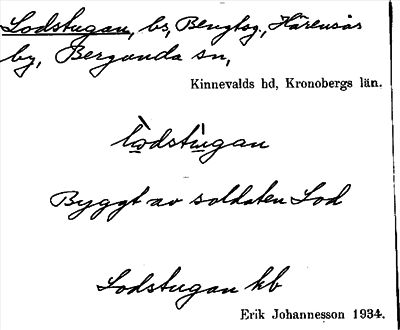 Lodstugan, bs, Bengtsg., Härensås
by, Bergunda sn,
Kinnevalds hd, Kronobergs län.
lòdstùgan
Byggt av soldaten Lod
Lodstugan kb
Erik Johannesson 1934.